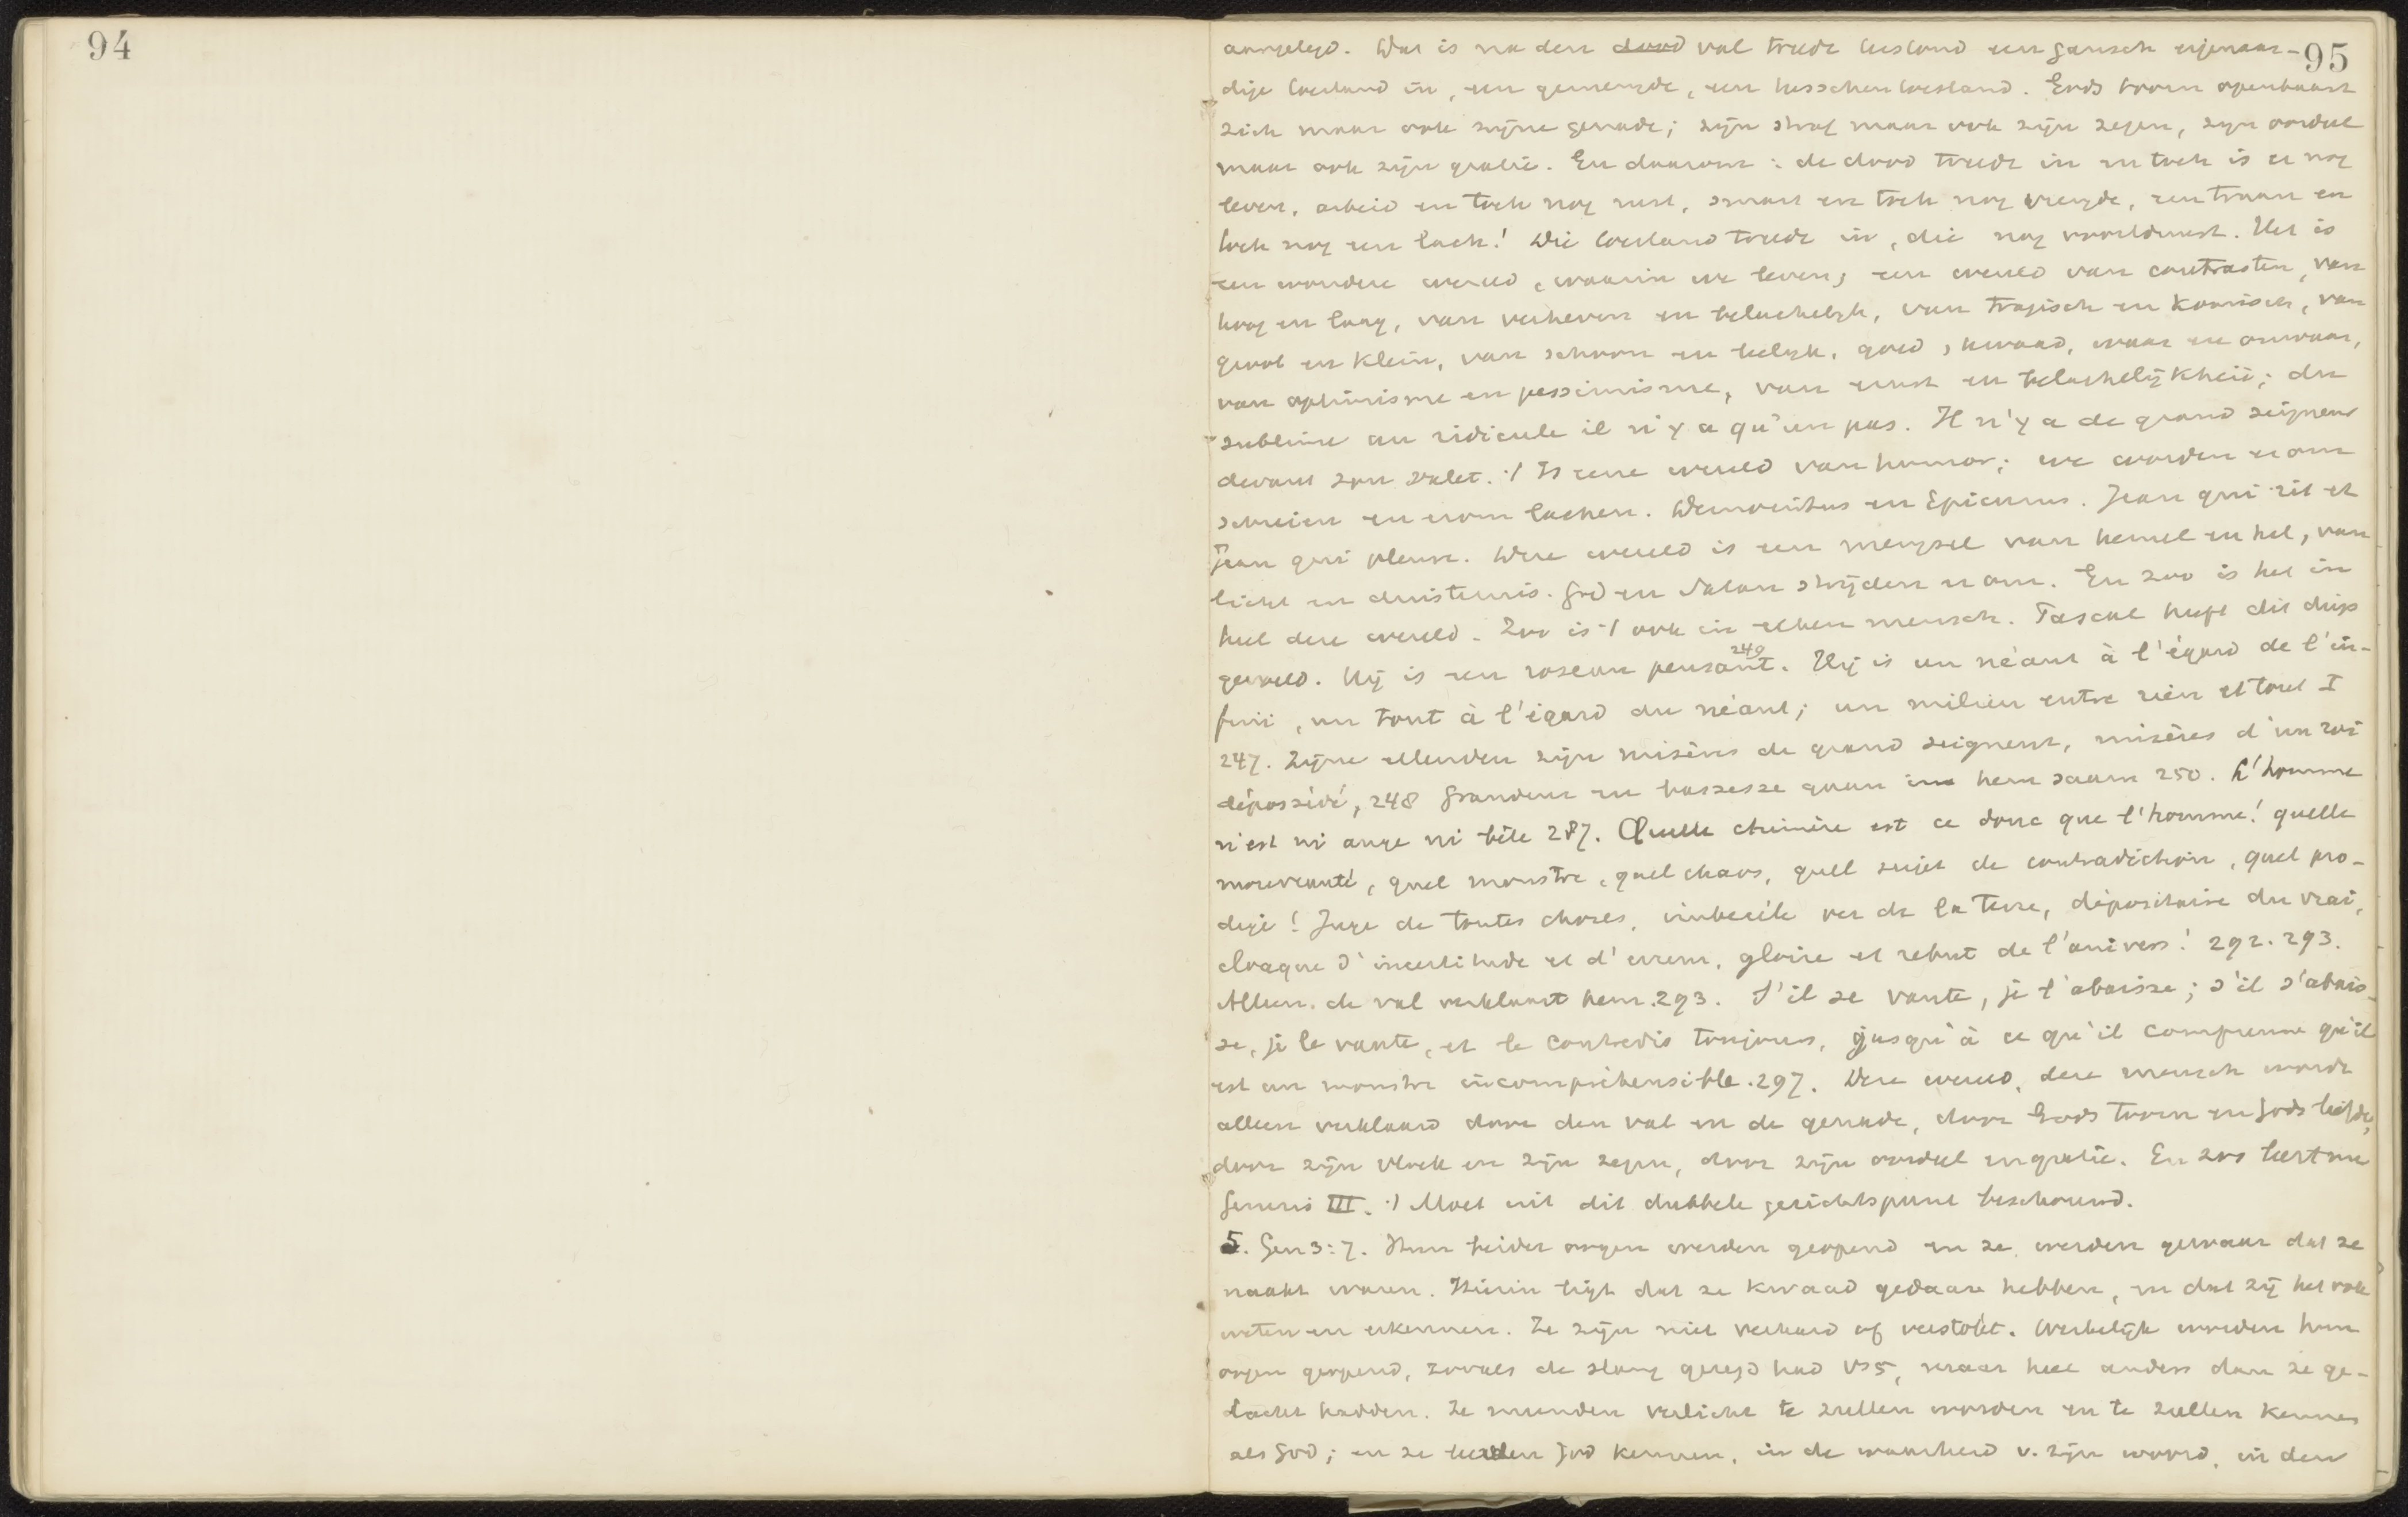 94
95
aangelegd. Dat is na den dood val treedt bestand een gansch eigenaar-
dige toestand in, een gemengde, een tusschentoestand. Gods toorn openbaart
zich maar ook zijne genade; zijn straf maar ook zijn zegen, zijn oordeel
maar ook zijn gratie. En daarom: de dood treedt in en toch is er nog
leven, arbeid en toch nog rust, smart en toch nog vreugde, een traan en
toch nog een lach! Die toestand treedt in, die nog voortduurt. Het is
een wondere wereld, waarin we leven, een wereld van contrasten, van
hoog en laag, van verheven en belachelijk, van tragisch en komisch, van
groot en klein, van schoon en leelijk, goed, kwaad, waar en onwaar,
van optimisme en pessimisme, van ernst en belachelijkheid; du
sublime au ridicule il n'y a qu'un pas. Il n'y a de grand seigneur
devant son valet. 't Is eene wereld van humor; we worden er om
schreien en erom lachen. Democritus en Epicurus. Jean qui rit et
Jean qui pleure. Deze wereld is een mengsel van hemel en hel, van
licht en duisternis. God en Satan strijden er om. En zoo is het in
heel deze wereld. Zoo is 't ook in elken mensch. Pascal heeft dit diep
gevoeld. Hij is een roseau pensant. 249 Hij is un néant à l'égard de l'in-
fini, un tout à l'égard du néant; un milieu entre rien et tout I
247. Zijne ellenden zijn misères de grand seigneur, misères d'un roi
dépossédé, 248 Grandeur en bassesse gaan in hem saam 250. L'homme
n'est ni ange ni bête 287. Quelle chimère est ce donc que l'homme! quelle
nouveauté, quel monstre, quel chaos, quell sujet de contradiction, quel pro-
dige! Juge de toutes choses, imbecile ver de la terre, dépositaire du vrai,
cloaque d'incertitude et d'erreur, gloire et rebut de l'univers! 292. 293.
Alleen de val verklaart hem. 293. S'il se vante, je l'abaisse; s'il s'abais-
se, je le vante, et le contredis toujours, jusqu'à ce qu'il comprenne qu'il
est un monstre incompréhensible. 297. Deze wereld, deze mensch wordt
alleen verklaard door den val en de genade, door Gods toorn en Gods liefde,
door zijn vloek en zijn zegen, door zijn oordeel en gratie. En zoo leert nu
Genesis III. 't Moet uit dit dubbele gezichtspunt beschouwd.
5. Gen 3:7. Hun beider oogen werden geopend en ze werden gewaar dat ze
naakt waren. Hierin ligt dat ze kwaad gedaan hebben, en dat zij het ook
weten en erkennen. Ze zijn niet verhard of verstokt. Werkelijk worden hun
oogen geopend, zooals de slang gezegd had vs 5, maar heel anders dan ze ge-
dacht hadden. Ze meenden verlicht te zullen worden en te zullen kennen
als God; en ze leerden God kennen, in de waarheid v. zijn woord, in den